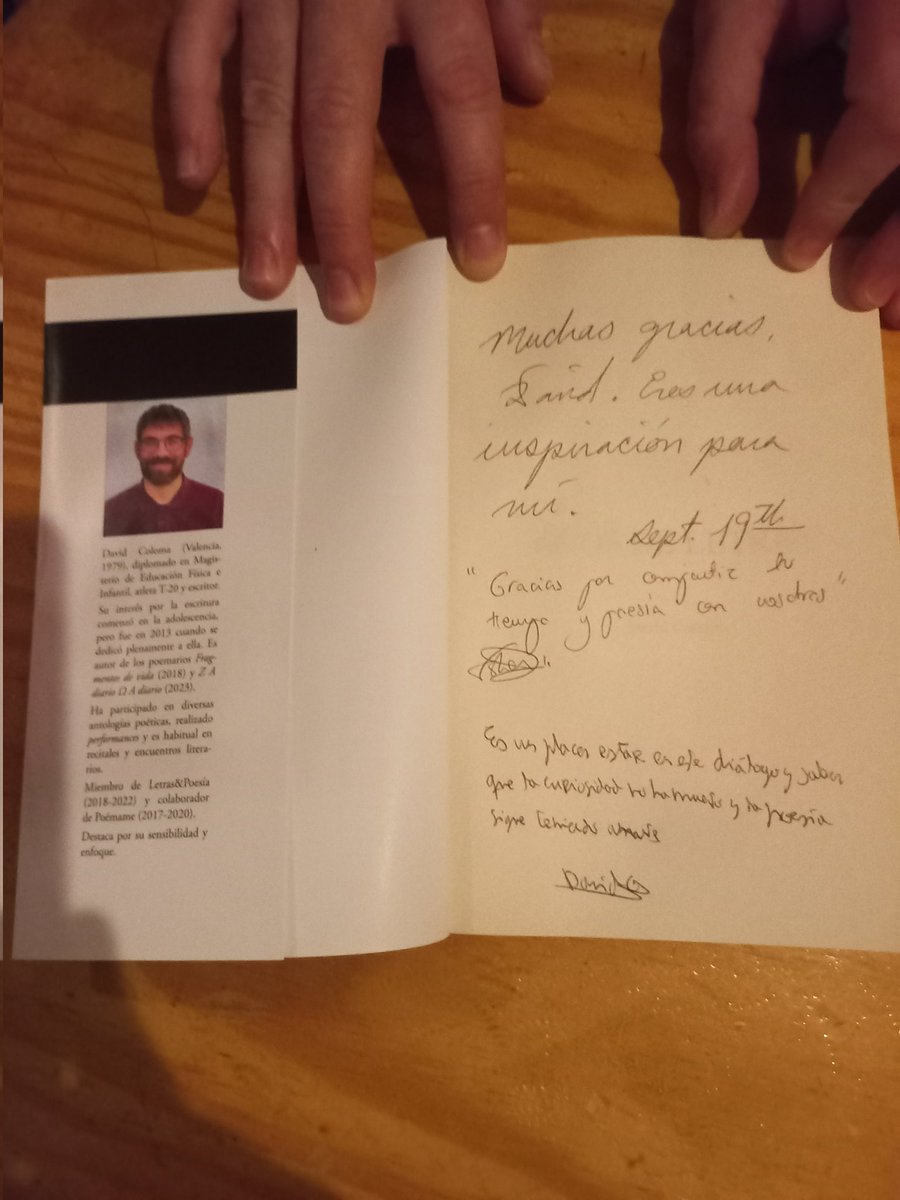 David Coloma (Valencia,
1979), diplomado en Magis-
terio de Educación Física e
Infantil, atleta T-20 y escritor.
Su interés por la escritura
comenzó en la adolescencia,
pero fue en 2013 cuando se
dedicó plenamente a ella. Es
autor de los poemarios Frag-
mentos de vida (2018) y Z A
diario Ω A diario (2023).
Ha participado en diversas
antologías poéticas, realizado
performances y es habitual en
recitales y encuentros litera-
rios.
Miembro de Letras&Poesía
(2018-2022) y colaborador
de Poémame (2017-2020).
Destaca por su sensibilidad y
enfoque.
Muchas gracias,
David. Eres una
inspiración para
mí.
Sept. 19th
"Gracias por compartir tu
tiempo y poesía con nosotros"
Es un placer estar en este diálogo y saber
que la curiosidad no ha muerto y la poesía
sigue
David